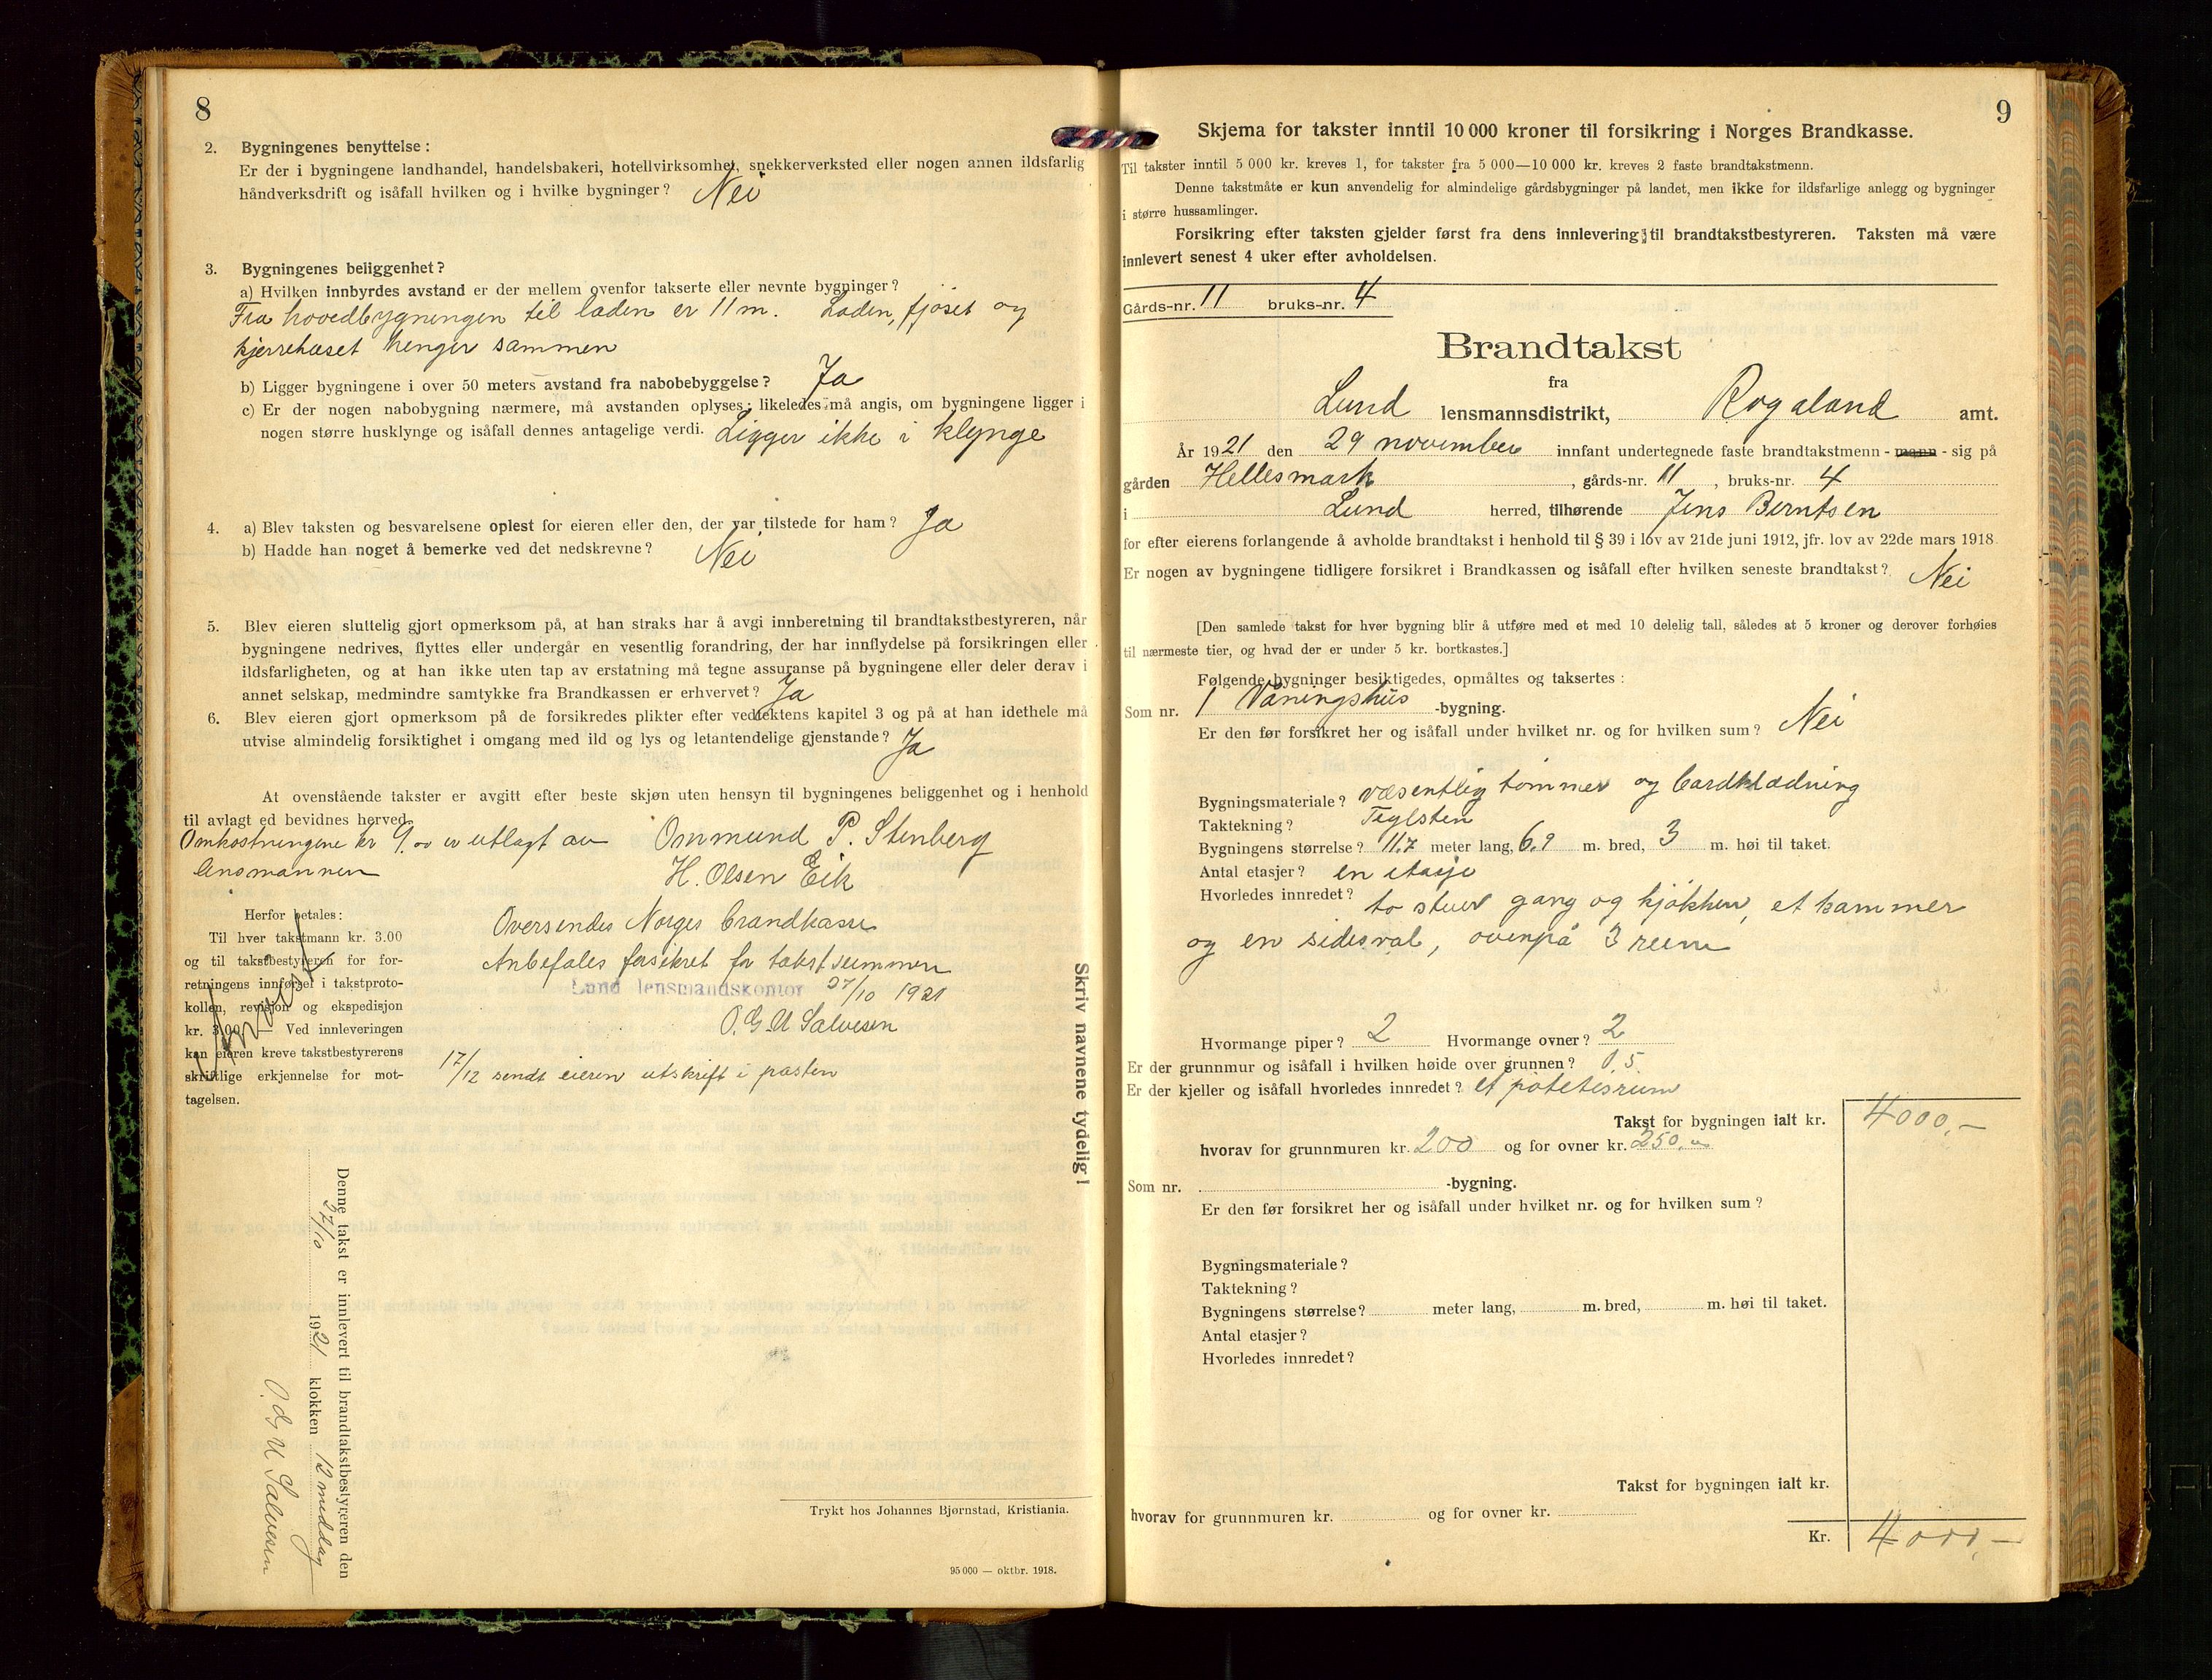 8
2. Bygningenes benyttelse:
Er der i bygningene landhandel, handelsbakeri, hotellvirksomhet, snekkerverksted eller nogen annen ildsfarlig
håndverksdrift og isåfall hvilken og i hvilke bygninger? Nei
3. Bygningenes beliggenhet?
a) Hvilken innbyrdes avstand er der mellem ovenfor takserte eller nevnte bygninger?
Fra hovedbygningen til laden er 11 m. Laden, fjøset og
kjerrehuset henger sammen
b) Ligger bygningene i over 50 meters avstand fra nabobebyggelse? Ja
c) Er der nogen nabobygning nærmere, må avstanden oplyses; likeledes må angis, om bygningene ligger i
nogen større husklynge og isåfall dennes antagelige verdi. Ligger ikke i klynge
4. a) Blev taksten og besvarelsene oplest for eieren eller den, der var tilstede for ham? Ja
b) Hadde han noget å bemerke ved det nedskrevne? Nei
5. Blev eieren sluttelig gjort opmerksom på, at han straks har å avgi innberetning til brandtakstbestyreren, når
bygningene nedrives, flyttes eller undergår en vesentlig forandring, der har innflydelse på forsikringen eller
ildsfarligheten, og at han ikke uten tap av erstatning må tegne assuranse på bygningene eller deler derav i
annet selskap, medmindre samtykke fra Brandkassen er erhvervet? Ja
6. Blev eieren gjort opmerksom på de forsikredes plikter efter vedtektens kapitel 3 og på at han idethele må
utvise almindelig forsiktighet i omgang med ild og lys og letantendelige gjenstande? Ja
At ovenstående takster er avgitt efter beste skjøn uten hensyn til bygningenes beliggenhet og i henhold
til avlagt ed bevidnes herved.
Omkostningene kr 9.00 er utlagt av Ommund P. Stenberg
lensmannen H. Olsen Eik
Herfor betales:
Til hver takstmann kr. 3.00
og til takstbestyreren for for-
retningens innførsel i takstproto-
kollen, revisjon og ekspedisjon
kr. 3.00. — Ved innleveringen
kan eieren kreve takstbestyrerens
skriftlige erkjennelse for mot-
tagelsen.
Oversendes Norges brandkasse
Anbefales forsikret for takstsummen
Lund lensmandskontor 27/10 1921
O. G. U Salvesen
17/12 sendt eieren utskrift i posten
Skriv navnene tydelig!
Denne takst er innlevert til brandtakstbestyreren den
27/10 1921 klokken 12 middag
O. G. U Salvesen
Trykt hos Johannes Bjørnstad, Kristiania.
95 000 — oktbr. 1918.
9
Skjema for takster inntil 10 000 kroner til forsikring i Norges Brandkasse.
Til takster inntil 5 000 kr. kreves 1, for takster fra 5 000—10 000 kr. kreves 2 faste brandtakstmenn.
Denne takstmåte er kun anvendelig for almindelige gårdsbygninger på landet, men ikke for ildsfarlige anlegg og bygninger
i større hussamlinger.
Forsikring efter taksten gjelder først fra dens innlevering til brandtakstbestyreren. Taksten må være
innlevert senest 4 uker efter avholdelsen.
Gårds-nr. 11 bruks-nr. 4
Brandtakst
fra
Lund lensmannsdistrikt, Rogaland amt.
År 1921 den 29 november innfant undertegnede faste brandtakstmenn - mann - sig på
gården Hellesmark, gårds-nr. 11, bruks-nr. 4
i Lund herred, tilhørende Jens Berntsen
for efter eierens forlangende å avholde brandtakst i henhold til § 39 i lov av 21de juni 1912, jfr. lov av 22de mars 1918.
Er nogen av bygningene tidligere forsikret i Brandkassen og isåfall efter hvilken seneste brandtakst? Nei
[Den samlede takst for hver bygning blir å utføre med et med 10 delelig tall, således at 5 kroner og derover forhøies
til nærmeste tier, og hvad der er under 5 kr. bortkastes.]
Følgende bygninger besiktigedes, opmåltes og taksertes:
Som nr. 1 Våningshus -bygning.
Er den før forsikret her og isåfall under hvilket nr. og for hvilken sum? Nei
Bygningsmateriale? væsentlig tømmer og bordklædning
Taktekning? Teglsten
Bygningens størrelse? 11.7 meter lang, 6.9 m. bred, 3 m. høi til taket.
Antal etasjer? en etasje
Hvorledes innredet? to stuer gang og kjøkken, et kammer
og en sidesval, ovenpå 3 rum
Hvormange piper? 2 Hvormange ovner? 2
Er der grunnmur og isåfall i hvilken høide over grunnen? 0.5
Er der kjeller og isåfall hvorledes innredet? et potetesrum
Takst for bygningen ialt kr. 4000.-
hvorav for grunnmuren kr. 200 og for ovner kr. 250.00
Som nr. -bygning.
Er den før forsikret her og isåfall under hvilket nr. og for hvilken sum?
Bygningsmateriale?
Taktekning?
Bygningens størrelse? meter lang, m. bred, m. høi til taket.
Antal etasjer?
Hvorledes innredet?
Takst for bygningen ialt kr.
hvorav for grunnmuren kr. og for ovner kr.
Kr. 4000.-